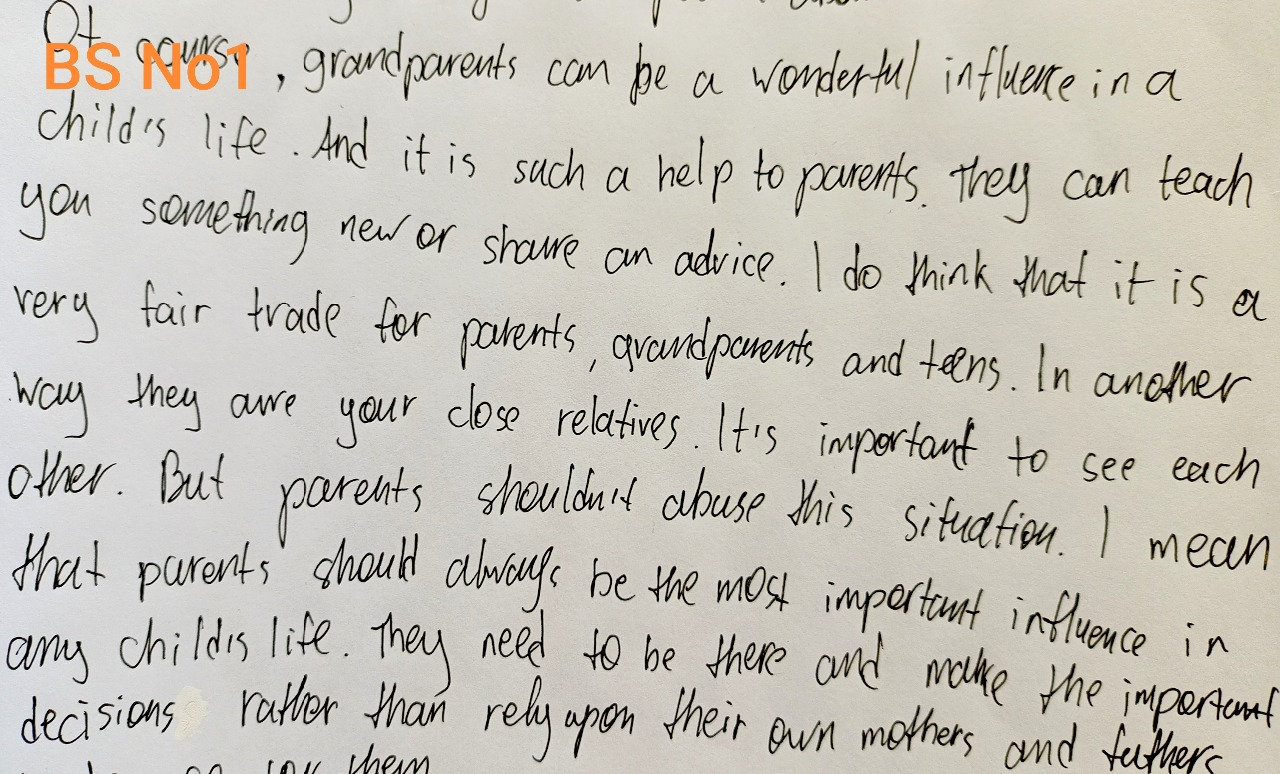 Of course, grandparents can be a wonderful influence in a
BS No1
child's life. And it is such a help to parents. They can teach
you something new or share an advice. I do think that it is a
very fair trade for parents, grandparents and teens. In another
way they are your close relatives. It's important to see each
other. But parents shouldn't abuse this situation. I mean
that parents should always be the most important influence in
any child's life. They need to be there and make the important
decisions rather than rely upon their own mothers and fathers
them